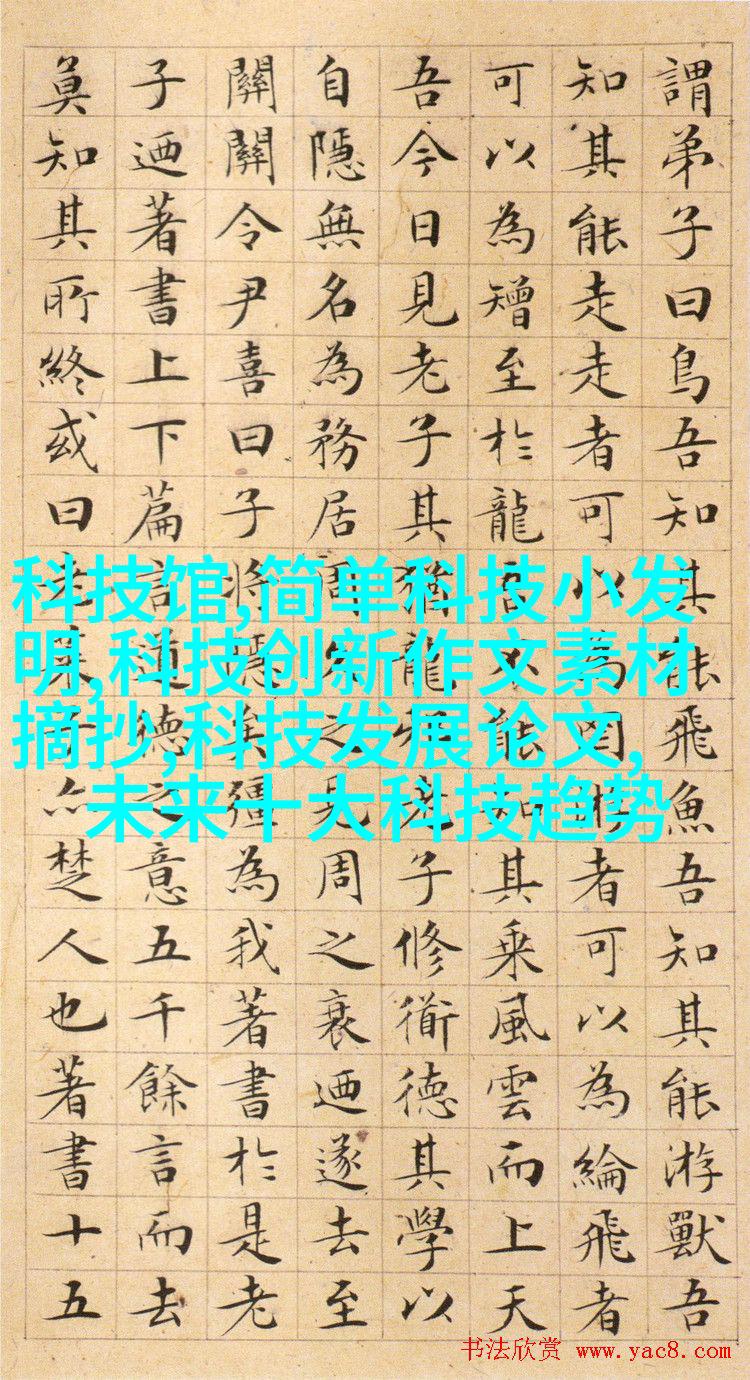 謂弟子曰鳥吾知其能飛魚吾知其能游獸吾
知其能走走者可以為罔游者可以為綸飛者
可以為矰至於龍吾不能知其乘風雲而上天
吾今日見老子其猶龍邪老子修衜德其學以
自隱無名為務居周久之見周之衰迺遂去至
關關令尹喜曰子將隱矣彊為我著書於是老
子迺著書上下篇言道德之意五千餘言而去
莫知其所終或曰老萊子亦楚人也著書十五
科技馆,简单科技小发
明,科技创新作文素材
摘抄,科技发展论文,
未来十大科技趋势
书法欣赏 www.yac8.com